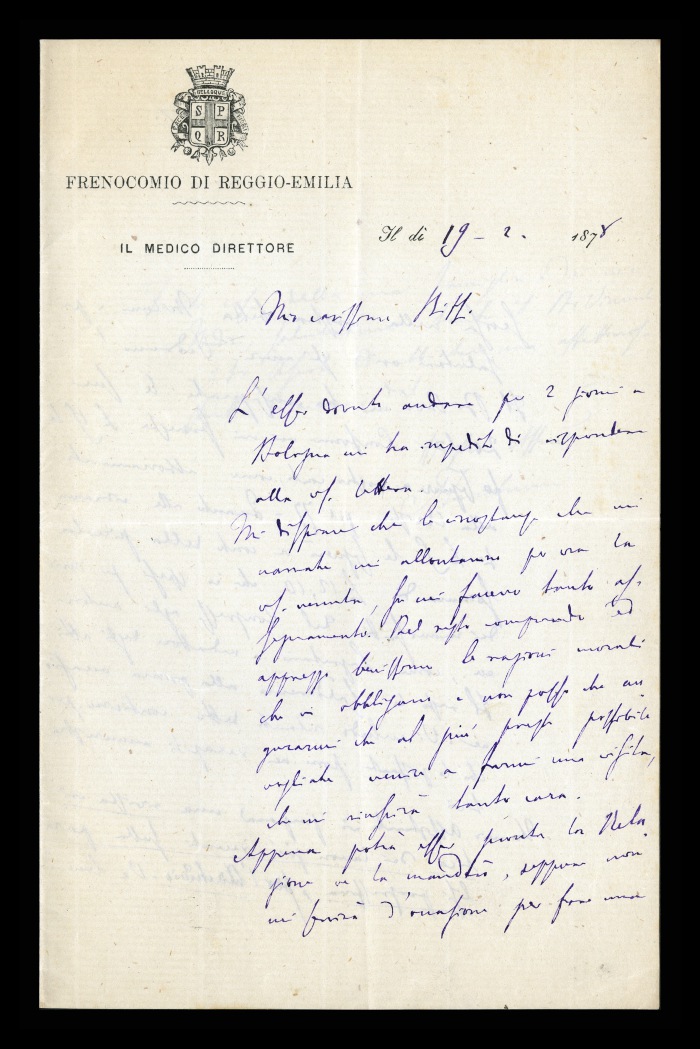 S P
Q R
FRENOCOMIO DI REGGIO-EMILIA
IL MEDICO DIRETTORE
Il dì 19 - 2. 1878
Mio carissimo Biffi.
L'esser dovuto andare per 2 giorni a
Bologna mi ha impedito di rispondere
alla vs. lettera.
Mi dispiace che le circostanze che mi
narrate mi allontanino per ora la
vs. venuta, su cui facevo tanto as-
segnamento. Del resto comprendo ed
apprezzo benissimo le ragioni morali
che vi obbligano e non posso che au
gurarmi che al più presto possibile
vogliate venire a farmi una visita,
che mi riuscirà tanto cara.
Appena potrà esser pronta la Rela
zione ve la manderò, seppure non
mi servirà d'occasione per fare una